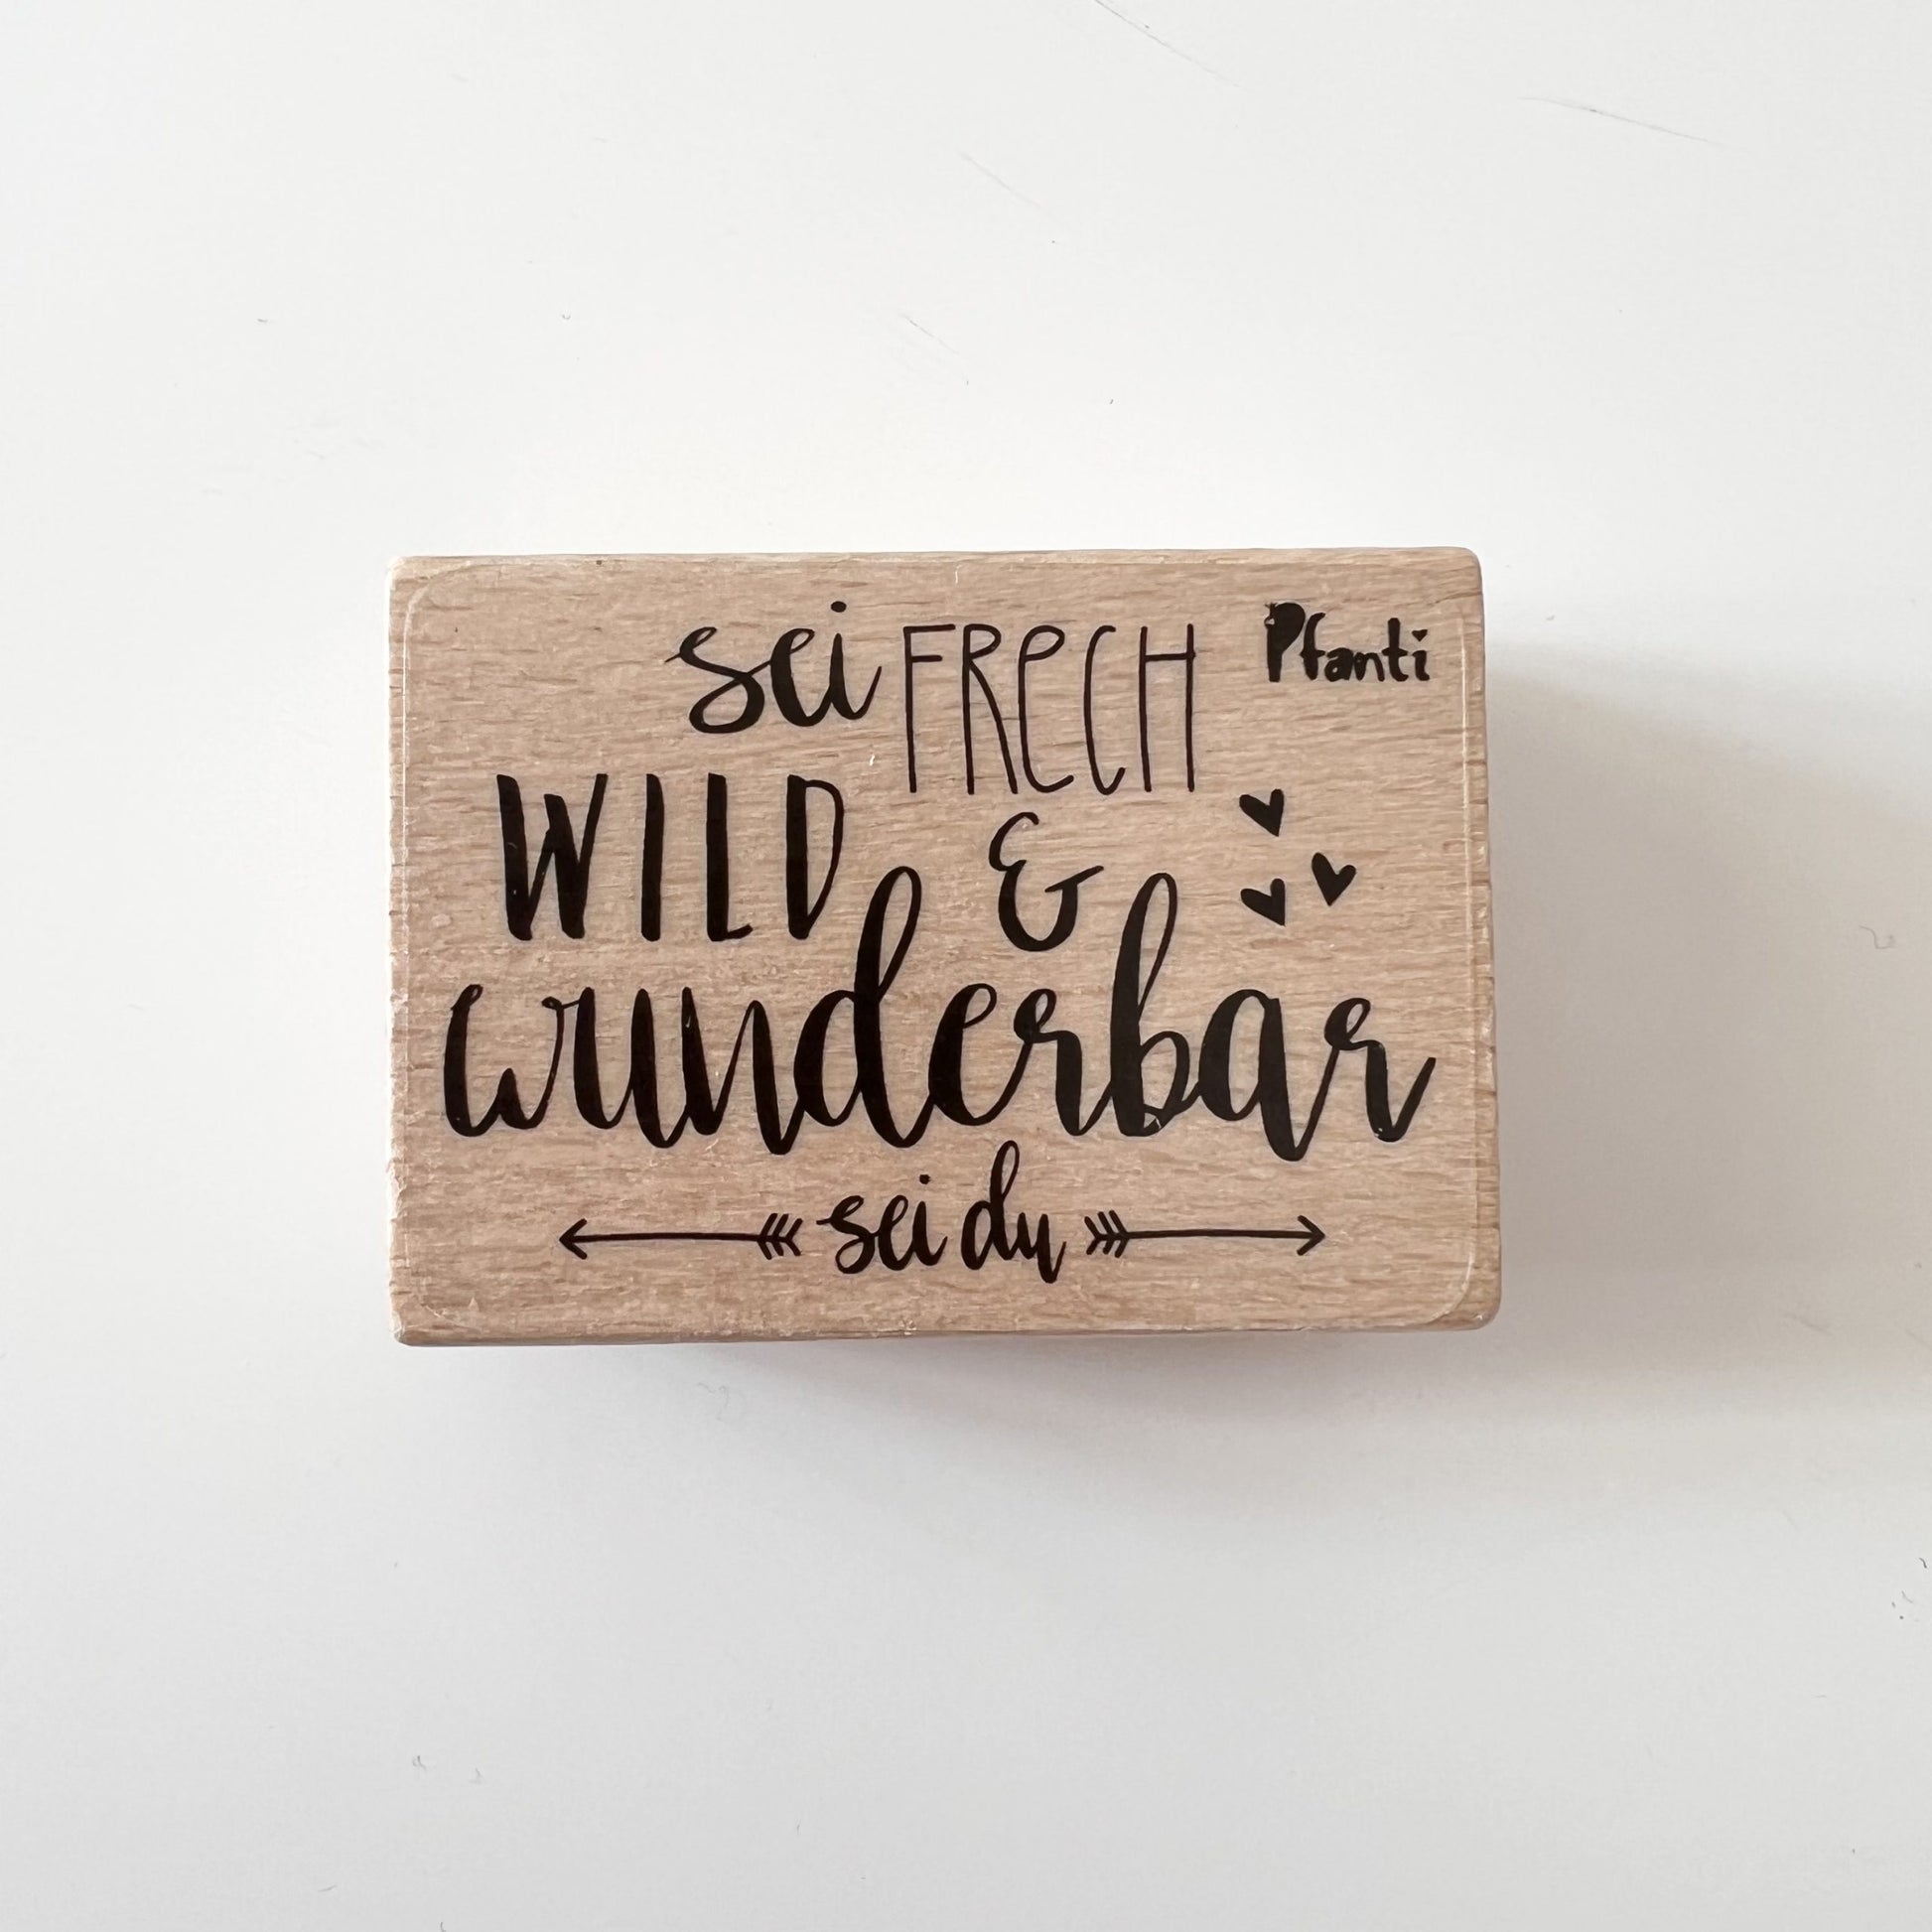 sei FRECH
Pfanti
WILD &
wunderbar
sei du